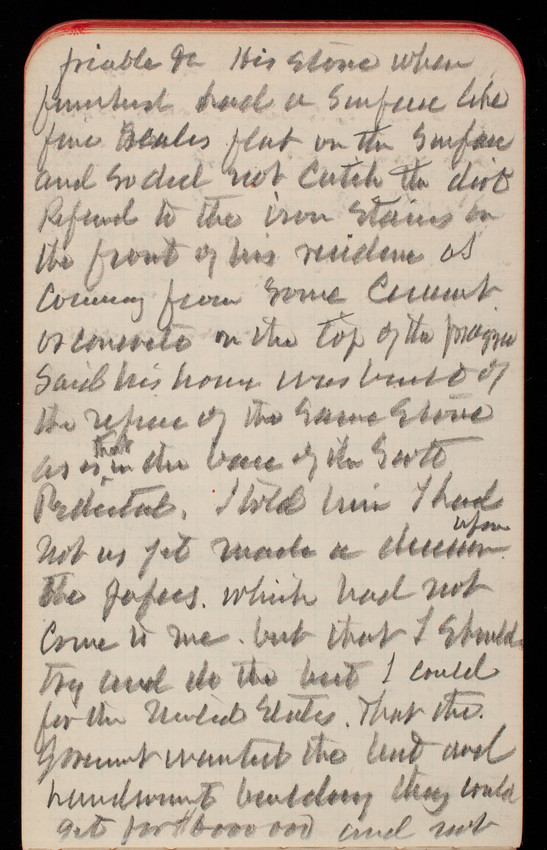 friable &c His stone when
finished had a surface like
fine scales flat on the surface
and so did not catch the dirt
Refered to the iron stains on
the front of his residence as
coming from some cement
or concrete on the top of the
Said his house was built of
the refuse of the same stone
as is that in the base of the Scott
Pedestal. I told him I had
not as yet made a decision upon
the papers. which had not
come to me. but that I should
try and do the best I could
for the United States. That the
Goverment wanted the best and
handsomest building they could
get for $6000000 and not